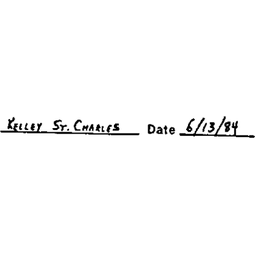 KELLEY ST. CHARLES Date 6/13/84